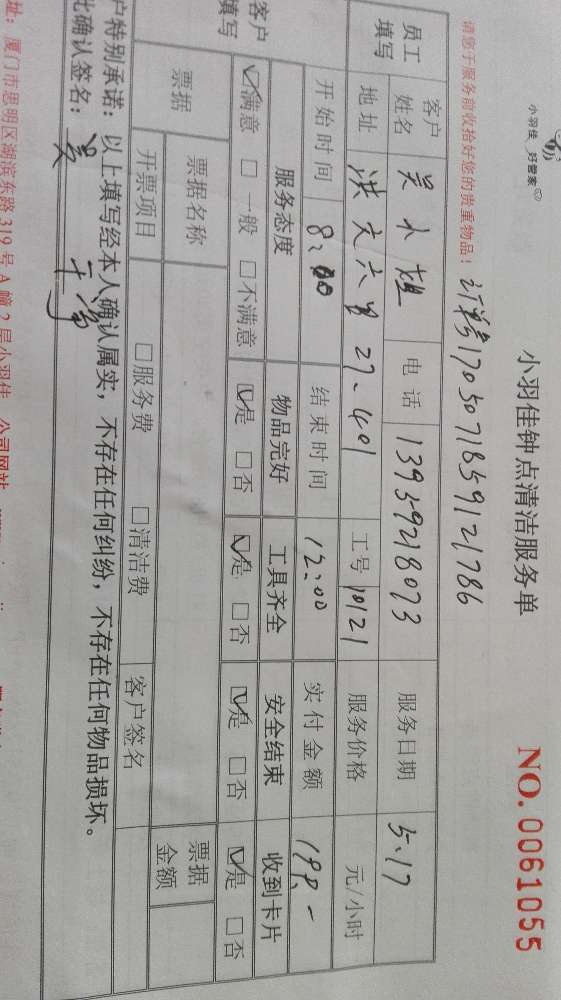 小羽佳 好管家
小羽佳钟点清洁服务单
NO.0061055
请您于服务前收拾好您的贵重物品!
订单号1705071859121786
员工填写
客户姓名 吴小姐 电话 13959218073 服务日期 5.17
地址 洪文六里27.401 工号 10121 服务价格 元/小时
开始时间 8:00 结束时间 12:00 实付金额 198.-
客户填写
服务态度 物品完好 工具齐全 安全结束 收到卡片
☑满意 □一般 □不满意 ☑是 □否 ☑是 □否 ☑是 □否 ☑是 □否
票据 票据名称 票据金额
开票项目 □服务费 □清洁费 客户签名
户特别承诺:以上填写经本人确认属实,不存在任何纠纷,不存在任何物品损坏。
此确认签名: 吴
址:厦门市思明区湖滨东路319号A幢2层小羽佳 公司网站